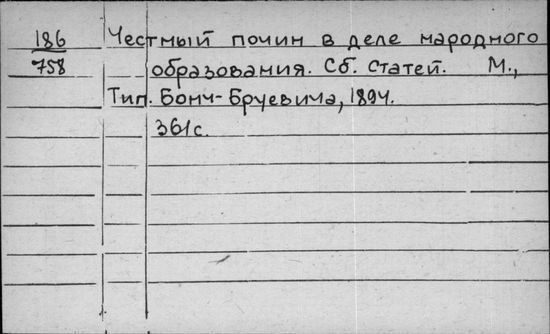 186 Честный почин в деле народного
758 образования. Сб. статей. М.,
Тип. Бонч-Бруевича, 1894.
361с.